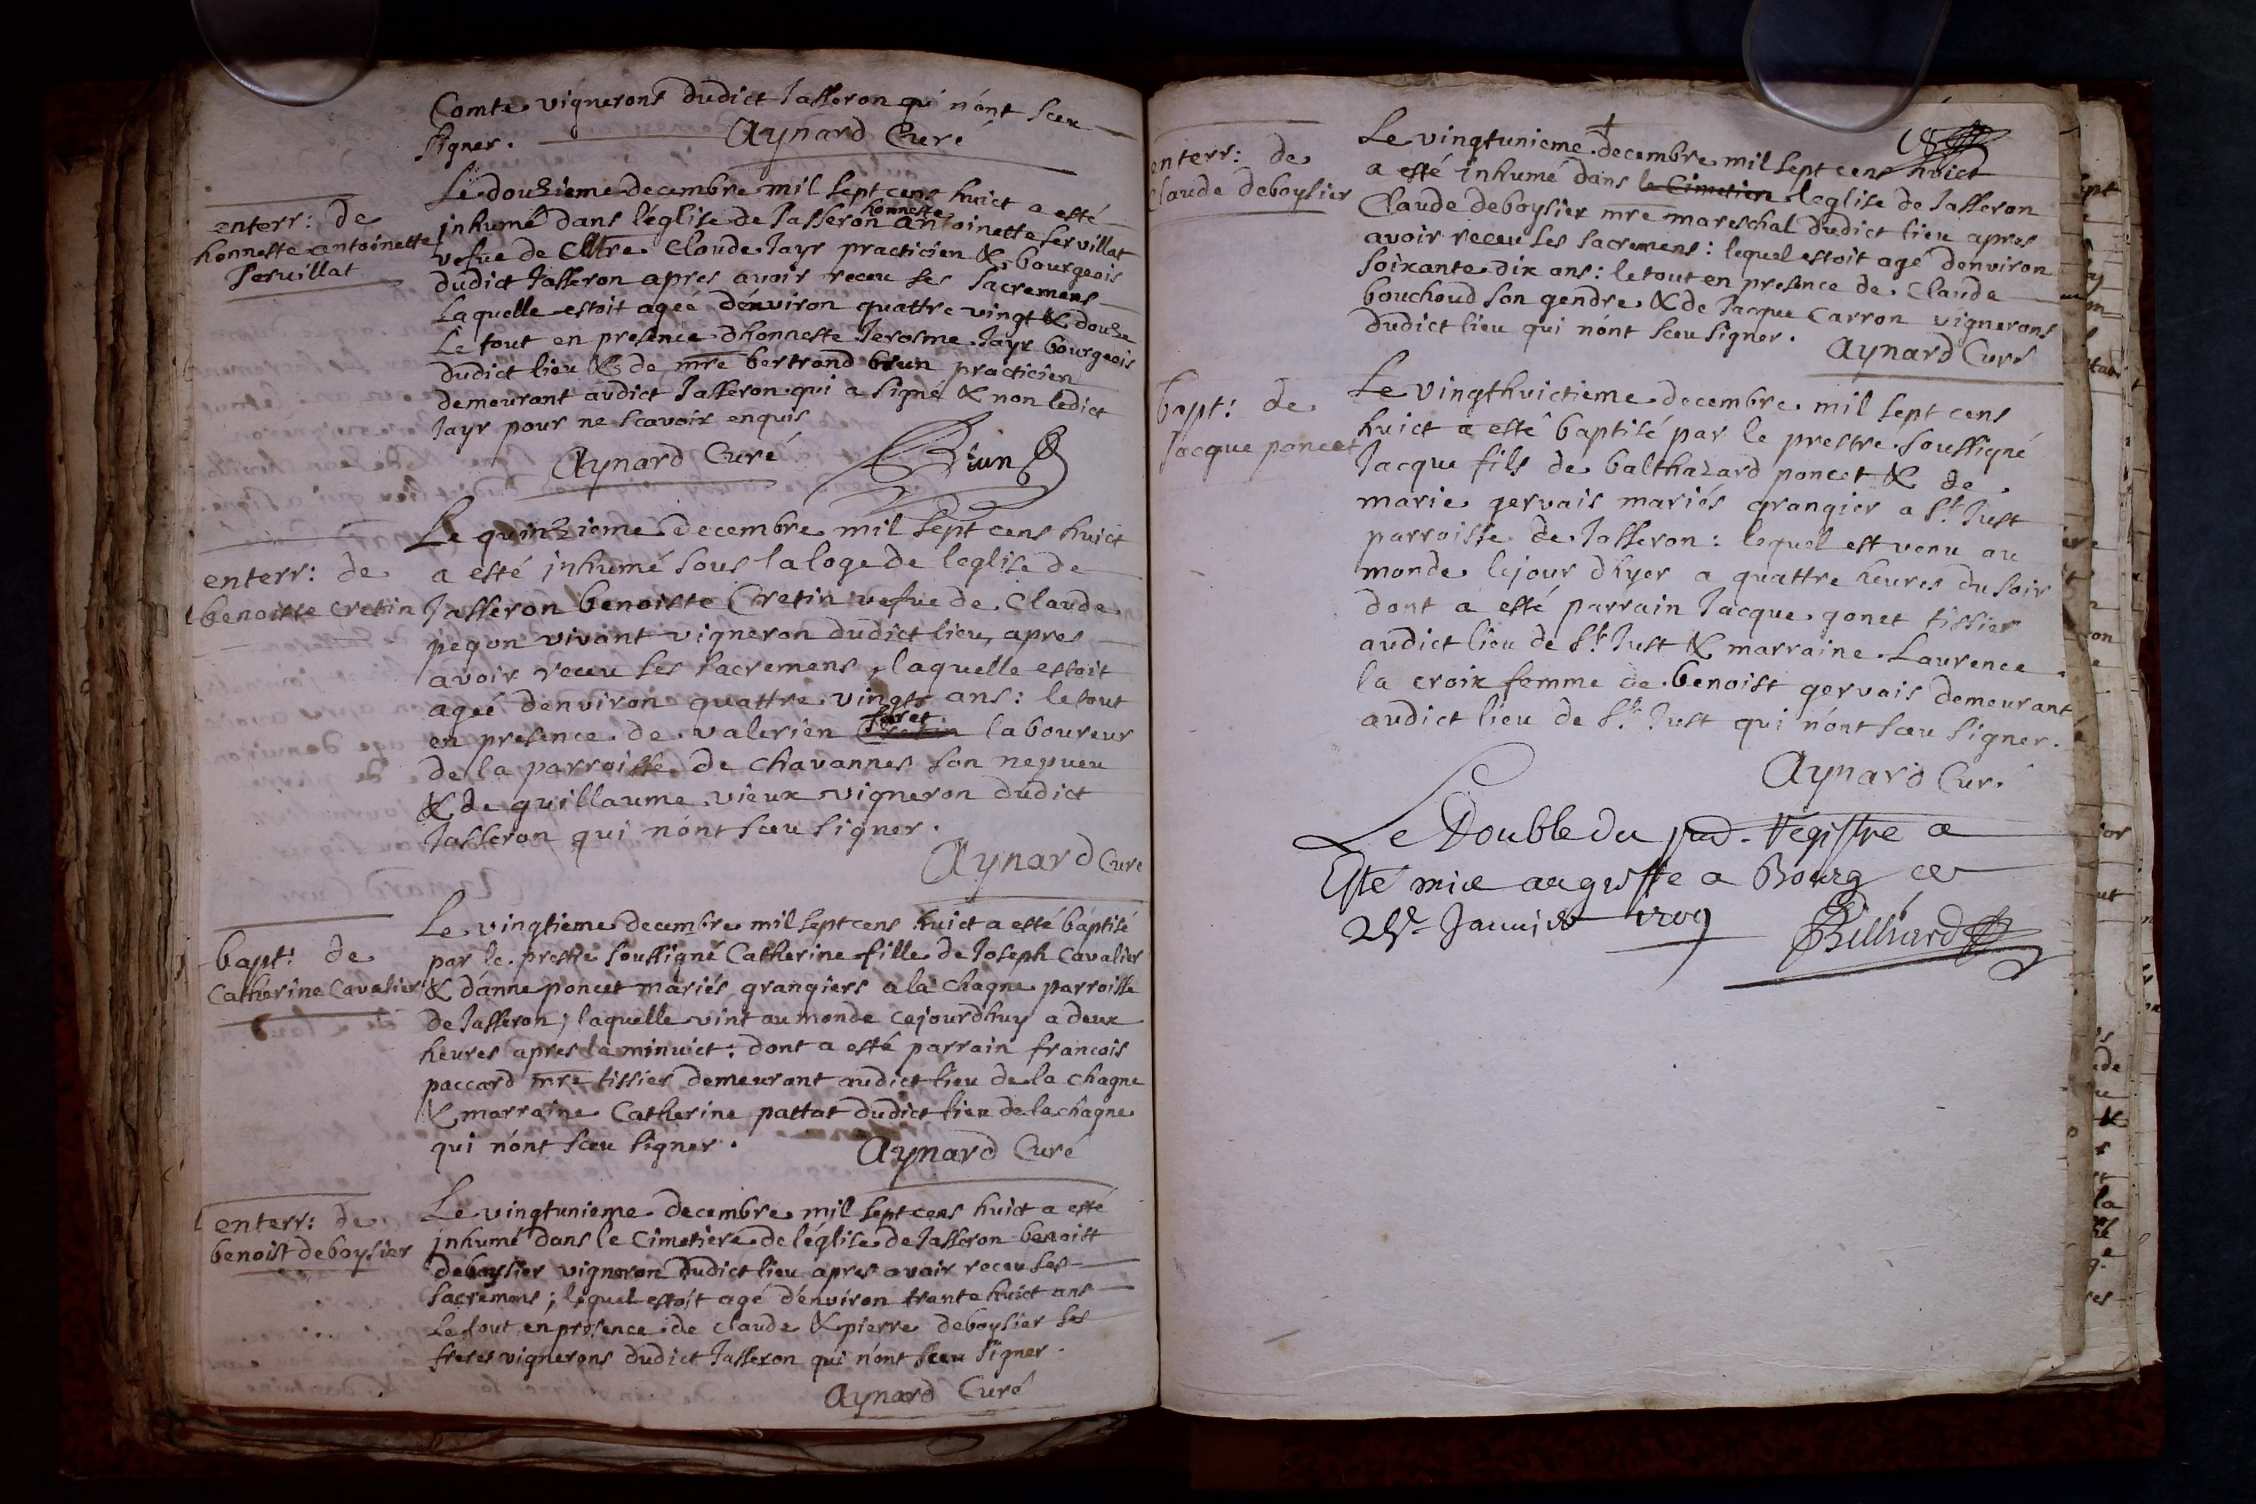 Comte vignerons dudict Jasseron qui n'ont sceu
signer. Aynard Curé
enterr: de
honneste antoinette
servillat
Le douzieme decembre mil sept cens huict a esté
inhumé dans l'eglise de Jasseron honneste antoinette servillat
vefve de Mtre Claude Jayr practicien & bourgeois
dudict Jasseron apres avoir receu ses sacremens
Laquelle estoit agée d'environ quattre vingt & douze
Le tout en presence d'honneste Jerosme Jayr bourgeois
dudict lieu & de mre bertrand brun practicien
demeurant audict Jasseron qui a signé & non ledict
Jayr pour ne scavoir enquis
Aynard Curé Brun
enterr: de
benoiste Cretin
Le quinzieme decembre mil sept cens huict
a esté inhumé sous la loge de leglise de
Jasseron benoiste Cretin vefve de Claude
pegon vivant vigneron dudict lieu, apres
avoir receu ses sacremens, laquelle estoit
ageé denviron quattre vingts ans: le tout
en presence de valerien Cretin laboureur
de la parroisse de chavannes son nepveu
& de guillaume vieux vigneron dudict
Jasseron qui n'ont sceu signer.
Aynard Curé
bapt: de
Catherine Cavalier
Le vingtieme decembre mil sept cens huict a esté baptisé
par le prestre soussigné Catherine fille de Joseph Cavalier
& d'anne poncet mariés grangiers a la chagne parroisse
de Jasseron; laquelle vint au monde cejourdhuy a deux
heures apres la minuict: dont a esté parrain francois
paccard mre tissier demeurant audict lieu de la chagne
& marraine Catherine pattat dudict lieu de la chagne
qui n'ont sceu signer. Aynard Curé
enterr: de
benoist deboysier
Le vingtunieme decembre mil sept cens huict a esté
inhumé dans le Cimetiere de l'eglise de Jasseron benoist
deboysier vigneron dudict lieu apres avoir receu ses
sacremens; lequel estoit agé d'environ trante huict ans
Le tout en presence de claude & pierre deboysier ses
freres vignerons dudict Jasseron qui n'ont sceu signer.
Aynard Curé
enterr: de
Claude deboysier
Le vingtunieme decembre mil sept cens huict
a esté inhumé dans le Cimetiere leglise de Jasseron
Claude deboysier mre mareschal dudict lieu apres
avoir receu ses sacremens: lequel estoit agé denviron
soixante dix ans: le tout en presence de Claude
bouchoud son gendre & de Jacque Carron vignerons
dudict lieu qui n'ont sceu signer. Aynard Curé
bapt: de
Jacque poncet
Le vingthuictieme decembre mil sept cens
huict a esté baptisé par le prestre soussigné
Jacque fils de balthazard poncet & de
marie gervais mariés grangier a St Just
parroisse de Jasseron: lequel est venu au
monde le jour d'hyer a quattre heures du soir
dont a esté parrain Jacque gonet tissier
audict lieu de St Just & marraine Laurence
la croix femme de benoist gervais demeurant
audict lieu de St Just qui n'ont sceu signer.
Aynard Curé
Le Double du pnt. Registre a
Esté mis au greffe a Bourg ce
Janvier 1709 Billiard